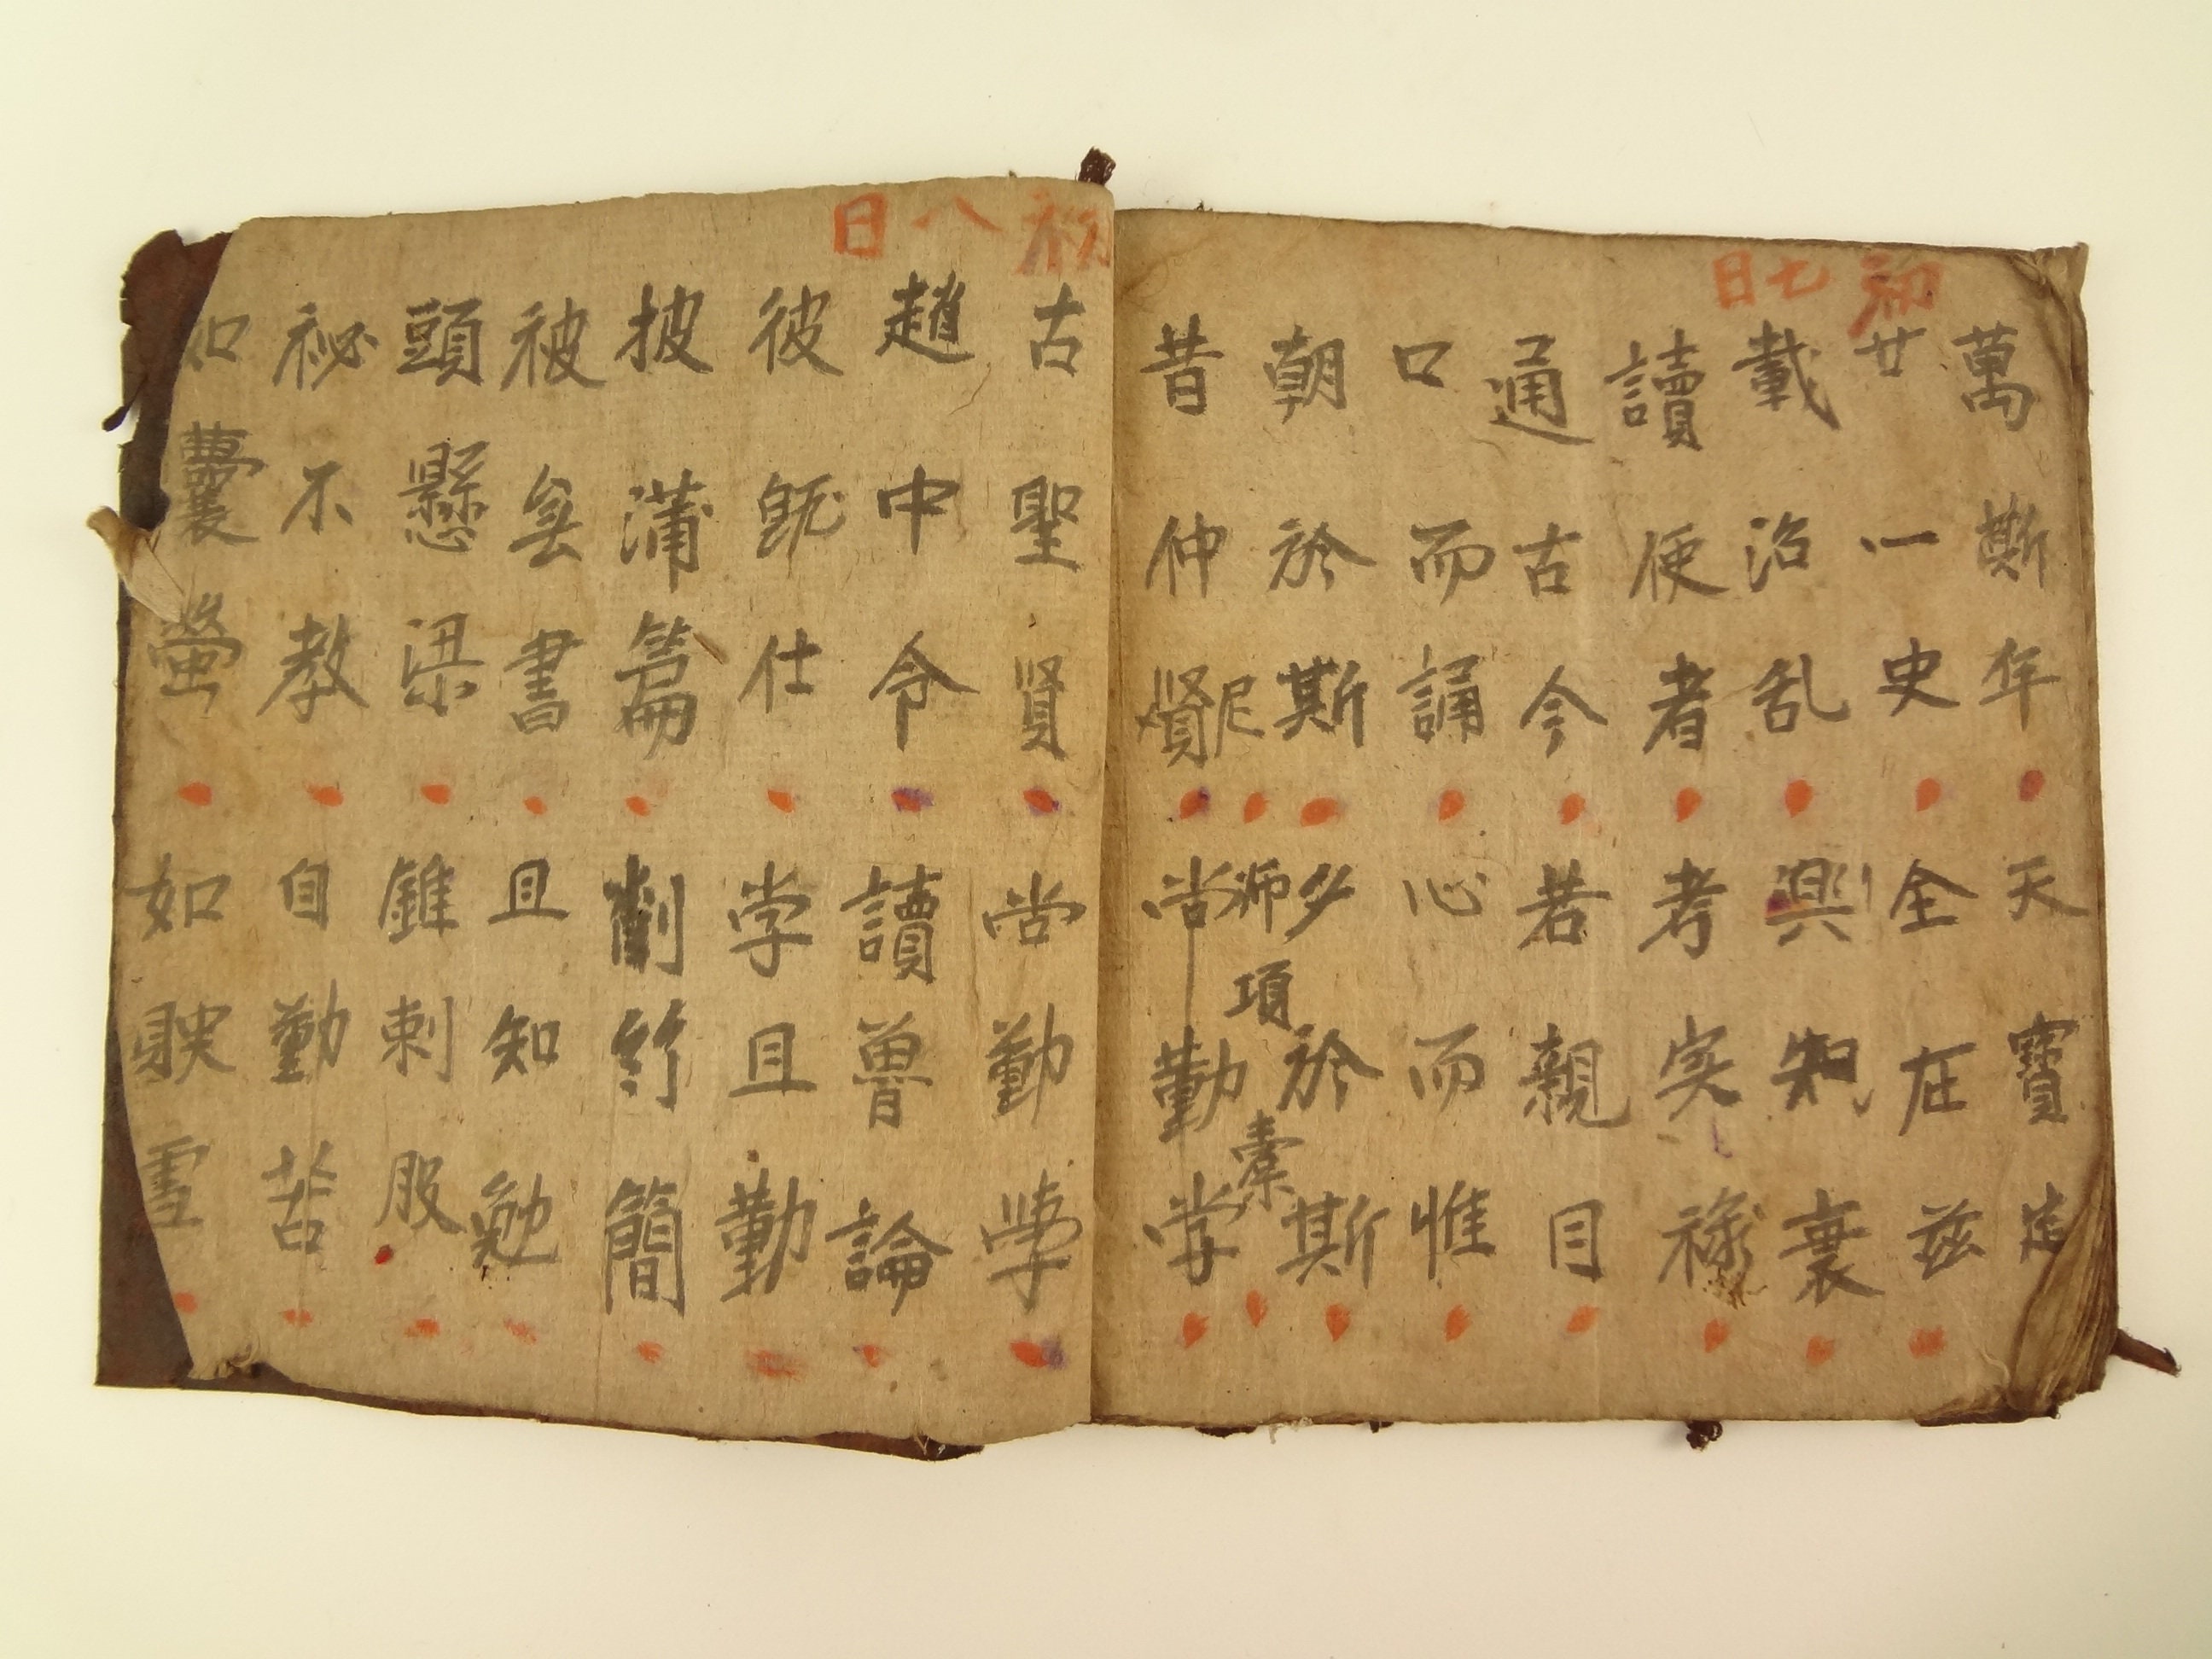 初七日
萬斯年天寶建
廿一史全在兹
載治乱興知衰
讀使者考实禄
通古今若親目
口而誦心而惟
朝於斯多於斯
尼師項槖
昔仲賢尚勤学
初八日
古聖賢尚勤學
趙中令讀魯論
彼既仕学且勤
披蒲篇削竹簡
被無書且知勉
頭懸梁錐刺股
祕不教自勤苦
如囊螢如映雪